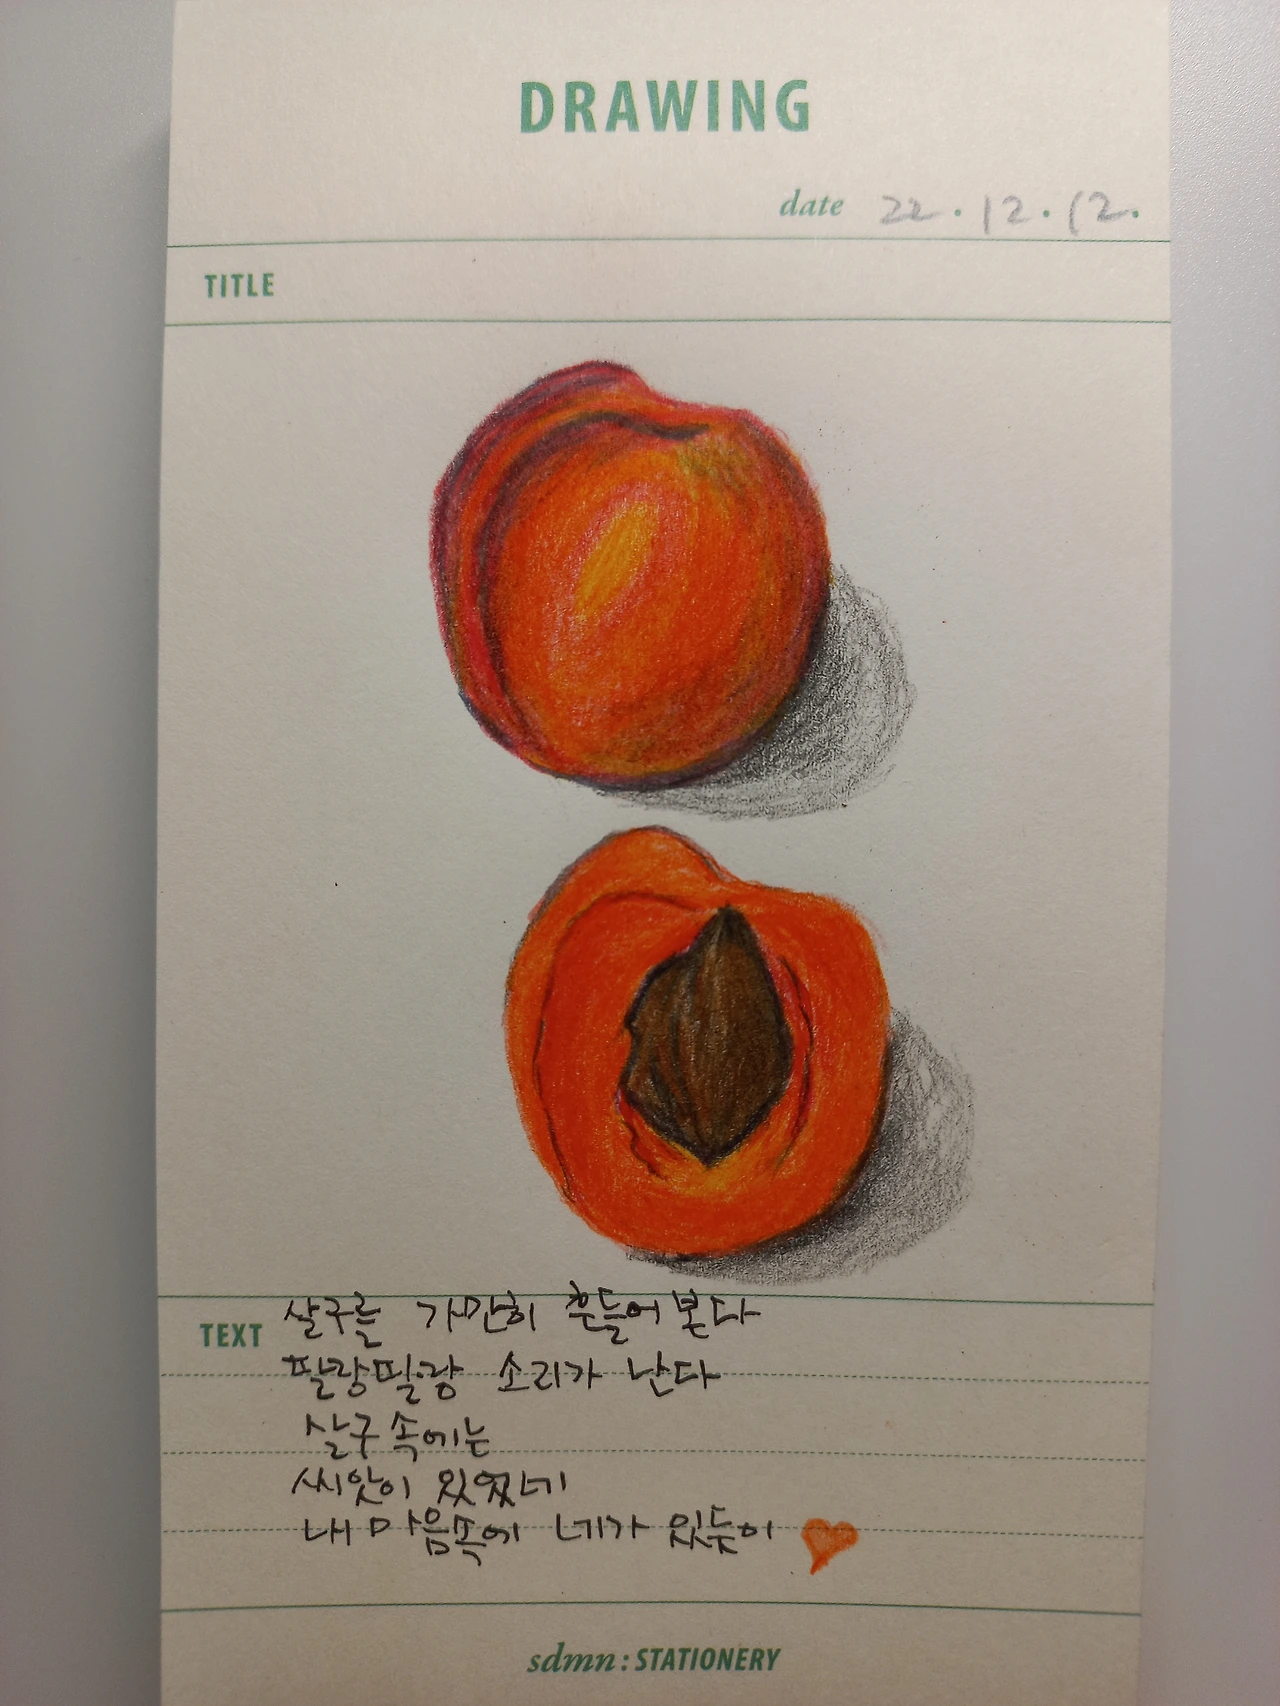 DRAWING
date 22.12.12.
TITLE
살구를 가만히 흔들어본다
TEXT
딸랑딸랑 소리가 난다
살구 속에는
씨앗이 있었네
내 마음속에 네가 있듯이
sdmn: STATIONERY